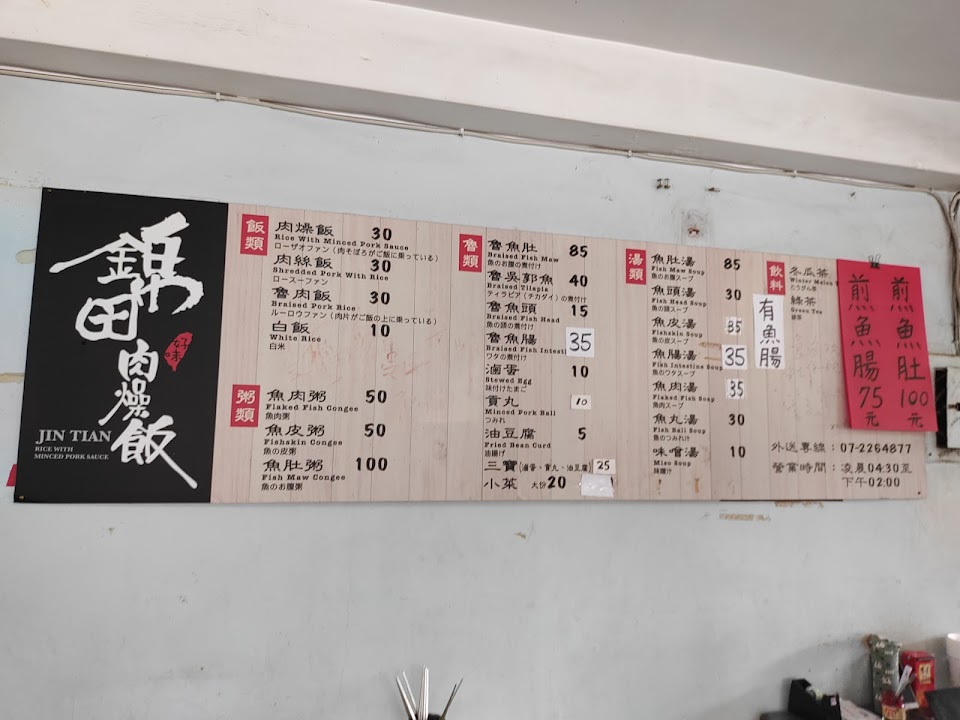 錦田
肉燥飯
好味
JIN TIAN
RICE WITH
MINCED PORK SAUCE
飯類
肉燥飯 30
Rice With Minced Pork Sauce
ローザオファン（肉そぼろがご飯に乗っている）
肉絲飯 30
Shredded Pork With Rice
ロースーファン
魯肉飯 30
Braised Pork Rice
ルーロウファン（肉片がご飯の上に乗っている）
白飯 10
White Rice
白米
粥類
魚肉粥 50
Flaked Fish Congee
魚肉粥
魚皮粥 50
Fishskin Congee
魚の皮粥
魚肚粥 100
Fish Maw Congee
魚のお腹粥
魯類
魯魚肚 85
Braised Fish Maw
魚のお腹の煮付け
魯吳郭魚 40
Braised Tilapia
ティラピア（チカダイ）の煮付け
魯魚頭 15
Braised Fish Head
魚の頭の煮付け
魯魚腸 35
Braised Fish Intesti
ワタの煮付け
滷蛋 10
Stewed Egg
味付けたまご
貢丸 10
Minced Pork Ball
つみれ
油豆腐 5
Fried Bean Curd
油揚げ
三寶(滷蛋、貢丸、油豆腐) 25
小菜 大份20
湯類
魚肚湯 85
Fish Maw Soup
魚のお腹スープ
魚頭湯 30
Fish Head Soup
魚の頭スープ
魚皮湯 35
Fishskin Soup
魚の皮スープ
魚腸湯 35
Fish Intestine Soup
魚のワタスープ
魚肉湯 35
Flaked Fish Soup
魚肉スープ
魚丸湯 30
Fish Ball Soup
魚のつみれ汁
味噌湯 10
Miso Soup
味噌汁
飲料
冬瓜茶
Winter Melon T
とうがん茶
綠茶
Green Tea
緑茶
有魚腸
煎魚肚100元
煎魚腸75元
外送專線：07-2264877
營業時間：凌晨04:30至
下午02:00